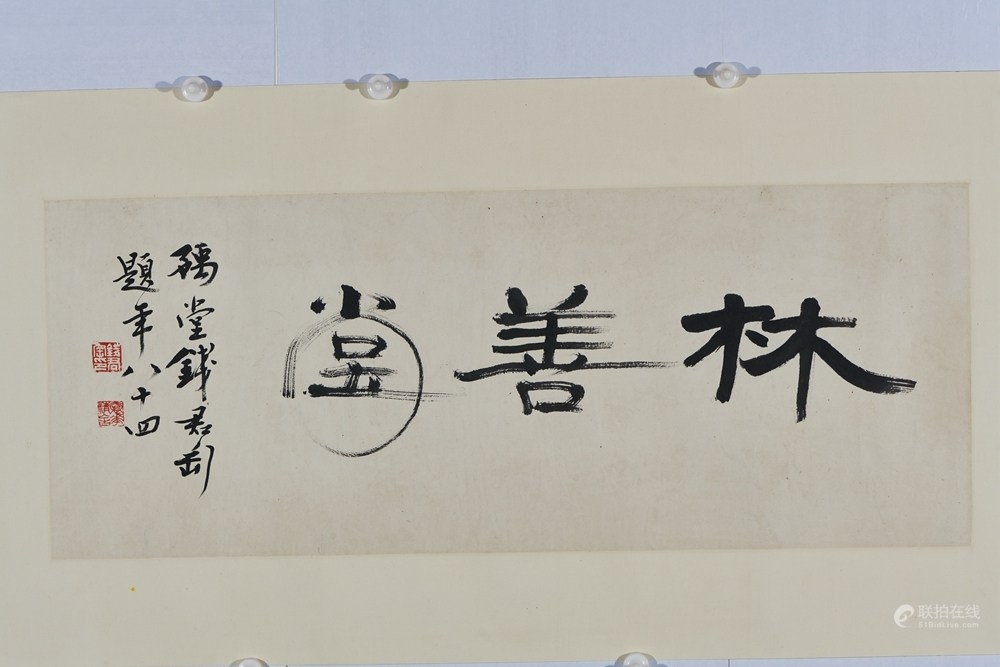 林善堂
豫堂錢君匋
題年八十四
联拍在线
51BidLive.com